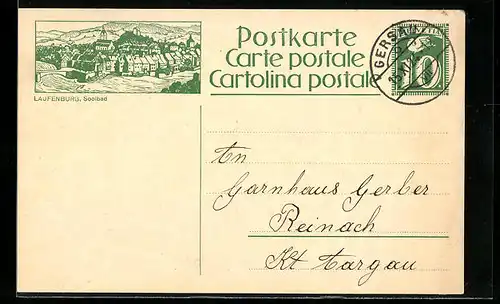 Postkarte
Carte postale
Cartolina postale
LAUFENBURG, Soolbad
GERSAU
10
An
Garnhaus Gerber
Reinach
Kt Aargau